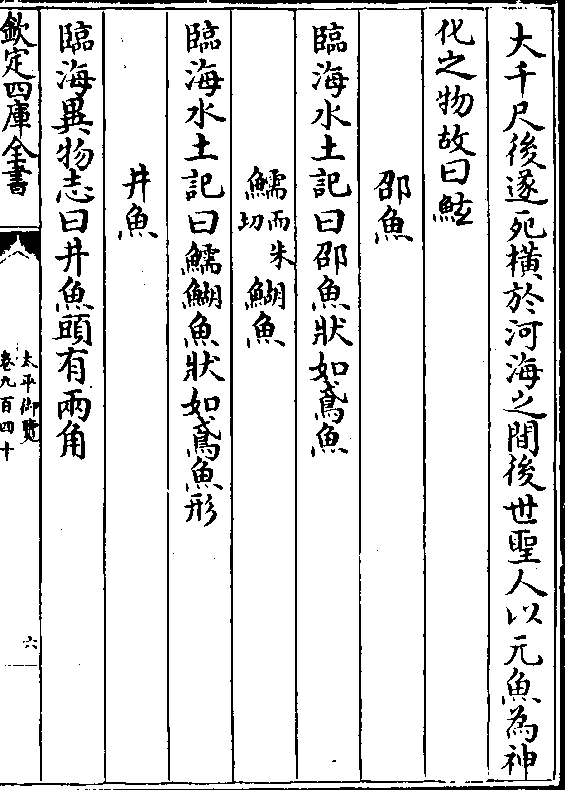 大千尺後遂死橫於河海之間後世聖人以元魚為神
化之物故曰鮌
邵魚
臨海水土記曰邵魚狀如鳶魚
鱬而朱切鰗魚
臨海水土記曰鱬鰗魚狀如鳶魚形
井魚
臨海異物志曰井魚頭有兩角
欽定四庫全書
太平御覽
卷九百四十
六